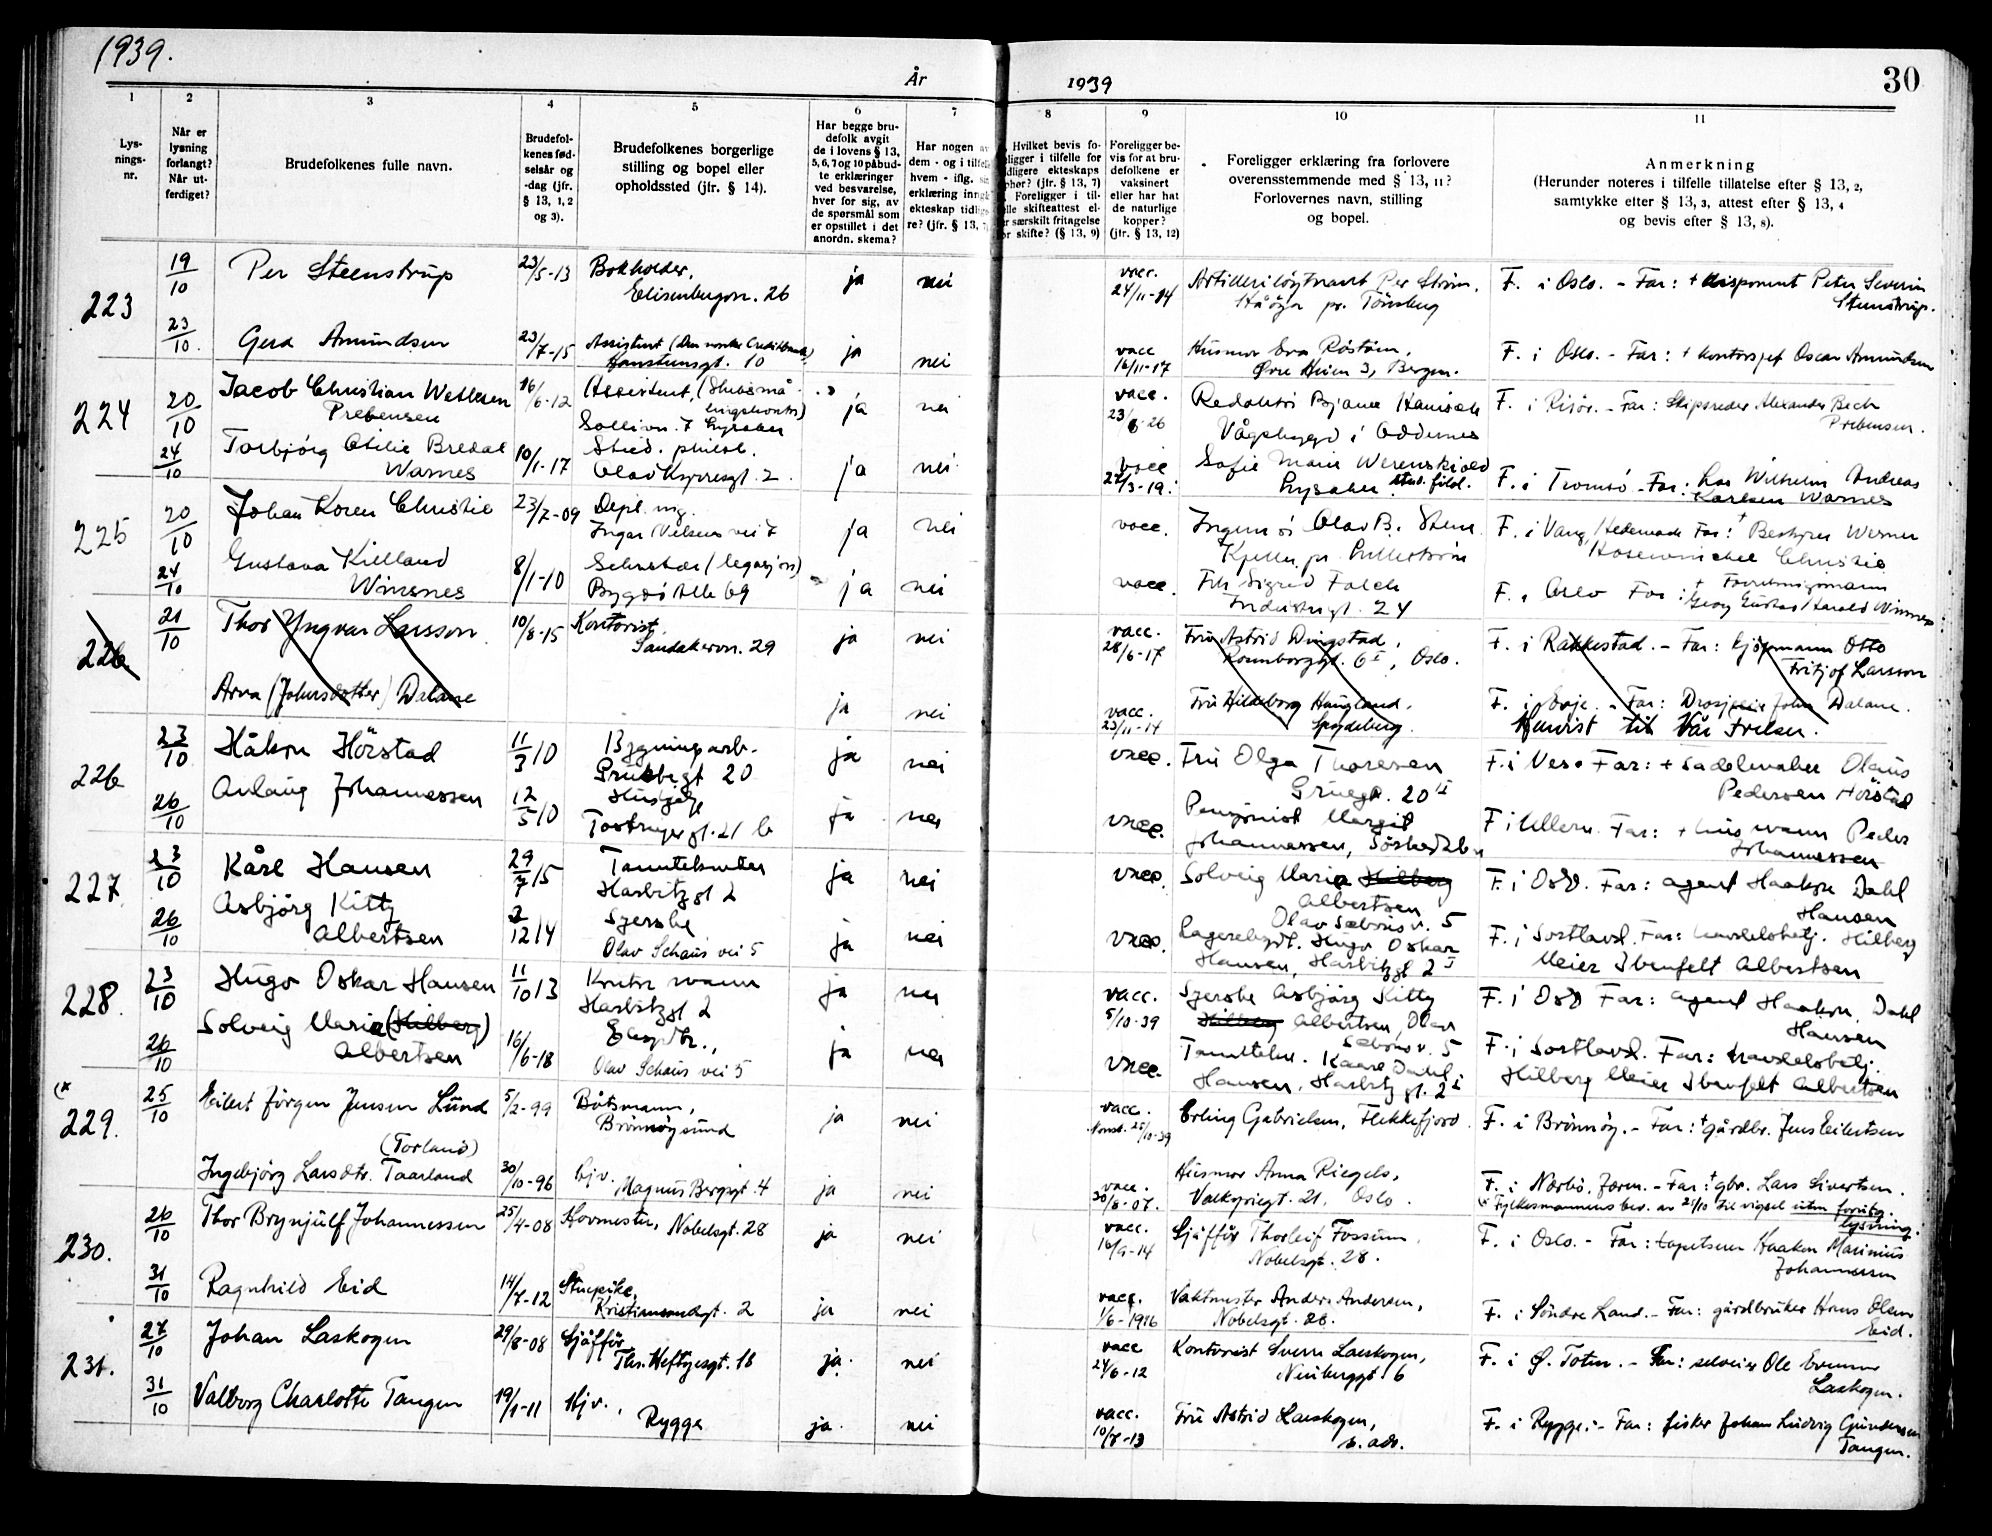 1939.
År
1939
30
1
2
3
4
5
6
7
8
9
10
11
Lys-
nings-
nr.
Når er
lysning
forlangt?
Når ut-
ferdiget?
Brudefolkenes fulle navn.
Brudefol-
kenes fød-
selsår og
-dag (jfr.
§ 13, 1, 2
og 3).
Brudefolkenes borgerlige
stilling og bopel eller
opholdssted (jfr. § 14).
Har begge bru-
defolk avgit
de i lovens § 13,
5, 6, 7 og 10 påbud-
te erklæringer
ved besvarelse,
hver for sig, av
de spørsmål som
er opstillet i det
anordn. skema?
Har nogen av
dem - og i tilfelle
hvem - iflg. sin
erklæring inngå
ekteskap tidlige-
re? (jfr. § 13, 7
Hvilket bevis fo-
ligger i tilfelle for
dligere ekteskaps
phør? (jfr. § 13, 7)
Foreligger i til-
elle skifteattest el-
er særskilt fritagelse
or skifte? (§ 13, 9)
Foreligger be-
vis for at bru-
defolkene er
vaksinert
eller har hat
de naturlige
kopper?
(jfr. § 13, 12)
Foreligger erklæring fra forlovere
overensstemmende med § 13, 11?
Forlovernes navn, stilling
og bopel.
Anmerkning
(Herunder noteres i tilfelle tillatelse efter § 13, 2,
samtykke efter § 13, 3, attest efter § 13, 4
og bevis efter § 13, 8).
223
19/10 Per Steenstrup 23/5-13 Bokholder, ja nei vacc. Artilleriløytnant Per Strøm, F. i Oslo. - Far: + disponent Peter Severin
Elisenbergvn. 26 24/11-14 Håöya pr. Tönsberg Steenstrup.
23/10. Gerd Amundsen 23/7-15 Assistent (Den norske Creditbank) ja nei vacc Husmor Eva Röström, F. i Oslo. - Far: + kontorsjef Oscar Amundsen
Hanstensgt. 10 16/11-17 Øvre Heien 3, Bergen.
224 20/10 Jacob Christian Wetlesen 16/6-12 Assistent, ja nei vacc. Redaktör Bjarne F. i Risör. - Far: Skipsreder Alexander Bech
Prebensen Sollivn. 7 Lysaker Vågsbygd i Oddernes Prebensen.
24/10 Torbjörg Otilie Bredal 10/1-17 Stud. philol. ja nei vacc Sofie Marie Werenskiold F. i Tromsö - Far: Lars Wilhelm Andreas
Warnes Olav Kyrresgt. 2 27/3-19. Lysaker stud. filol. Karlsen Warnes
225 20/10 Johan Koren Christie 23/7-09 Depl. ing. ja nei vacc. Ingeniör Olav B. Steen F. i Vang, Hedemark Far: + Bestyrer Werner
Ingar Nilsens vei 7 Kjeller pr. Lilleström Hosewinckel Christie
24/10 Gustava Kielland 8/1-10 Sekretær (legasjon) ja nei vacc. Frk Sigrid Falch F. i Oslo Far: + Forretningsmann
Winsnes Bygdö Alle 69 Industrigt. 24 Georg Gustav Harald Winsnes
226 21/10 Thor Yngvar Larsson 10/8-15 Kontorist, ja nei vacc. Fru Astrid Dingstad, F. i Rakkestad. - Far: kjöpmann Otto
Sandakervn. 29 28/6-17 Rosenborggt. 6 I, Oslo. Fritjof Larsson
Arna (Johnsdotter) Dalane ja nei vacc. Fru Hildeborg Haugland, F. i Evje. - Far: Drosjeeier John Dalane.
23/11-14 Spydeberg. Henvist til Vår Frelser.
226 23/10 Håkon Hörstad 11/3 10 Bygningsarb. ja nei vacc. Fru Olga Thoresen F. i Nes. Far: + Sadelmaker Olaus
Grüners gt 20 Grünegt. 20 II Pedersen Hörstad
26/10 Anlaug Johannessen 12/5 10 Hushjelp ja nei vacc. Pensjonist Margit F i Ullern. Far: + husmann Peder
Tostrupsgt. 21 b Johannessen, Sörkedalen Johannessen
227. 23/10 Kåre Hansen 29/7 15 Tanntekniker ja nei vacc. Solveig Maria Hilberg F. i Oslo. Far: agent Haakon Dahl
Harbitzgt 2 Albertsen Hansen
Olav Schous v. 5
26/10 Asbjörg Kitty 2/12 14 Syerske ja nei vacc. Lagerekspdt. Hugo Oskar F. i Sortland. Far: handelsbetj. Hilberg
Albertsen Olav Schous vei 5 Hansen, Harbitzgt 2 I Meier Ibenfelt Albertsen
228. 23/10 Hugo Oskar Hansen 11/10 13 Kontormann ja nei vacc. Syerske Asbjörg Kitty F. i Oslo Far: agent Haakon Dahl
Harbitzgt 2 5/10-39 Hilberg Albertsen, Olav Hansen
Schous v. 5
26/10 Solveig Maria (Hilberg) 16/6-18 Ekspdtr., ja nei vacc. Tanntekn. Kaare Dahl F. i Sortland. Far: handelsbetj.
Albertsen Olav Schous vei 5 Hansen, Harbitzgt. 2 I Hilberg Meier Ibenfelt Albertsen
(x
229. 25/10 Eilert Jörgen Jensen Lund 5/2-99 Båtsmann, ja nei vacc. Erling Gabrielsen, Flekkefjord. F. i Brönnöy. - Far: + gårdbr. Jens Eilertsen
Brönnöysund 25/10-39
(Torland)
Ingebjörg Larsdtr. Taarland 30/10-96 Hjv. ja nei vacc. Husmor Anna Riegels, F. i Nærbö, Jæren. - Far: + gbr. Lars Sivertsen.
Magnus Bergsgt. 4 30/8-07. Valkyriegt. 21, Oslo. (x Fylkesmannens bev. av 21/10 til vigsel uten forutg.
lysning.
230. 26/10 Thor Brynjulf Johannessen 25/4-08 Hovmester, Nobelsgt. 28 ja nei vacc. Sjåfför Thorleif Fossum, F. i Oslo. - Far: tapetserer Haakon Marinius
16/9-14 Nobelsgt. 28. Johannessen
31/10 Ragnhild Eid 14/7-12 Stuepike, ja nei vacc. Vaktmester Anders Andersen, F. i Söndre Land. - Far: gårdbruker Hans Olsen
Kristiansandgt. 2 1/6-1916 Nobelsgt. 28. Eid.
231. 27/10 Johan Laskogen 29/8-08 Sjåfför, ja. nei vacc Kontorist Sverre Laskogen, F. i Ø. Toten. - Far: selveier Ole Evensen
Ths. Heftyesgt. 1b 24/6-12 Nuiberggt 6 Laskogen.
31/10 Valborg Charlotte Tangen 19/1-11 Hjv., ja. nei vacc. Fru Astrid Laskogen, F. i Rygge. - Far: fisker Johan Ludvig Gundersen
Rygge 10/7-13 s. adr. Tangen.